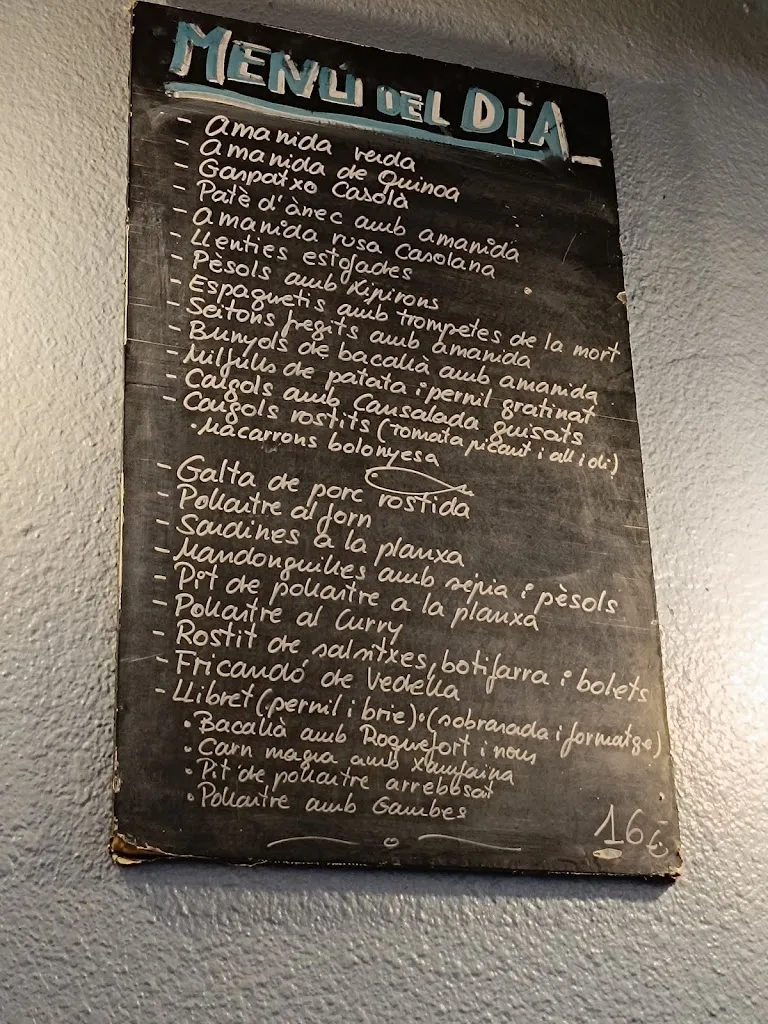 MENU DEL DÌA
- Amanida verda
- Amanida de Quinoa
- Gaspatxo Casolà
- Patè d'ànec amb amanida
- Amanida rusa Casolana
- Llenties estofades
- Pèsols amb Xipirons
- Espaguetis amb trompetes de la mort
- Seitons fregits amb amanida
- Bunyols de bacallà amb amanida
- Milfulls de patata i pernil gratinat
- Caragols amb Cansalada guisats
- Caragols rostits (tomata picant i all i oli)
• Macarrons bolonyesa
- Galta de porc rostida
- Pollastre al forn
- Sardines a la planxa
- Mandonguilles amb sepia i pèsols
- Pit de pollastre a la planxa
- Pollastre al Curry
- Rostit de salsitxes, botifarra i bolets
- Fricandó de Vedella
- Llibret (pernil i brie) • (sobrasada i formatge)
• Bacallà amb Roquefort i nous
• Carn magra amb Xamfaina
• Pit de pollastre arrebosat
• Pollastre amb Gambes
16€